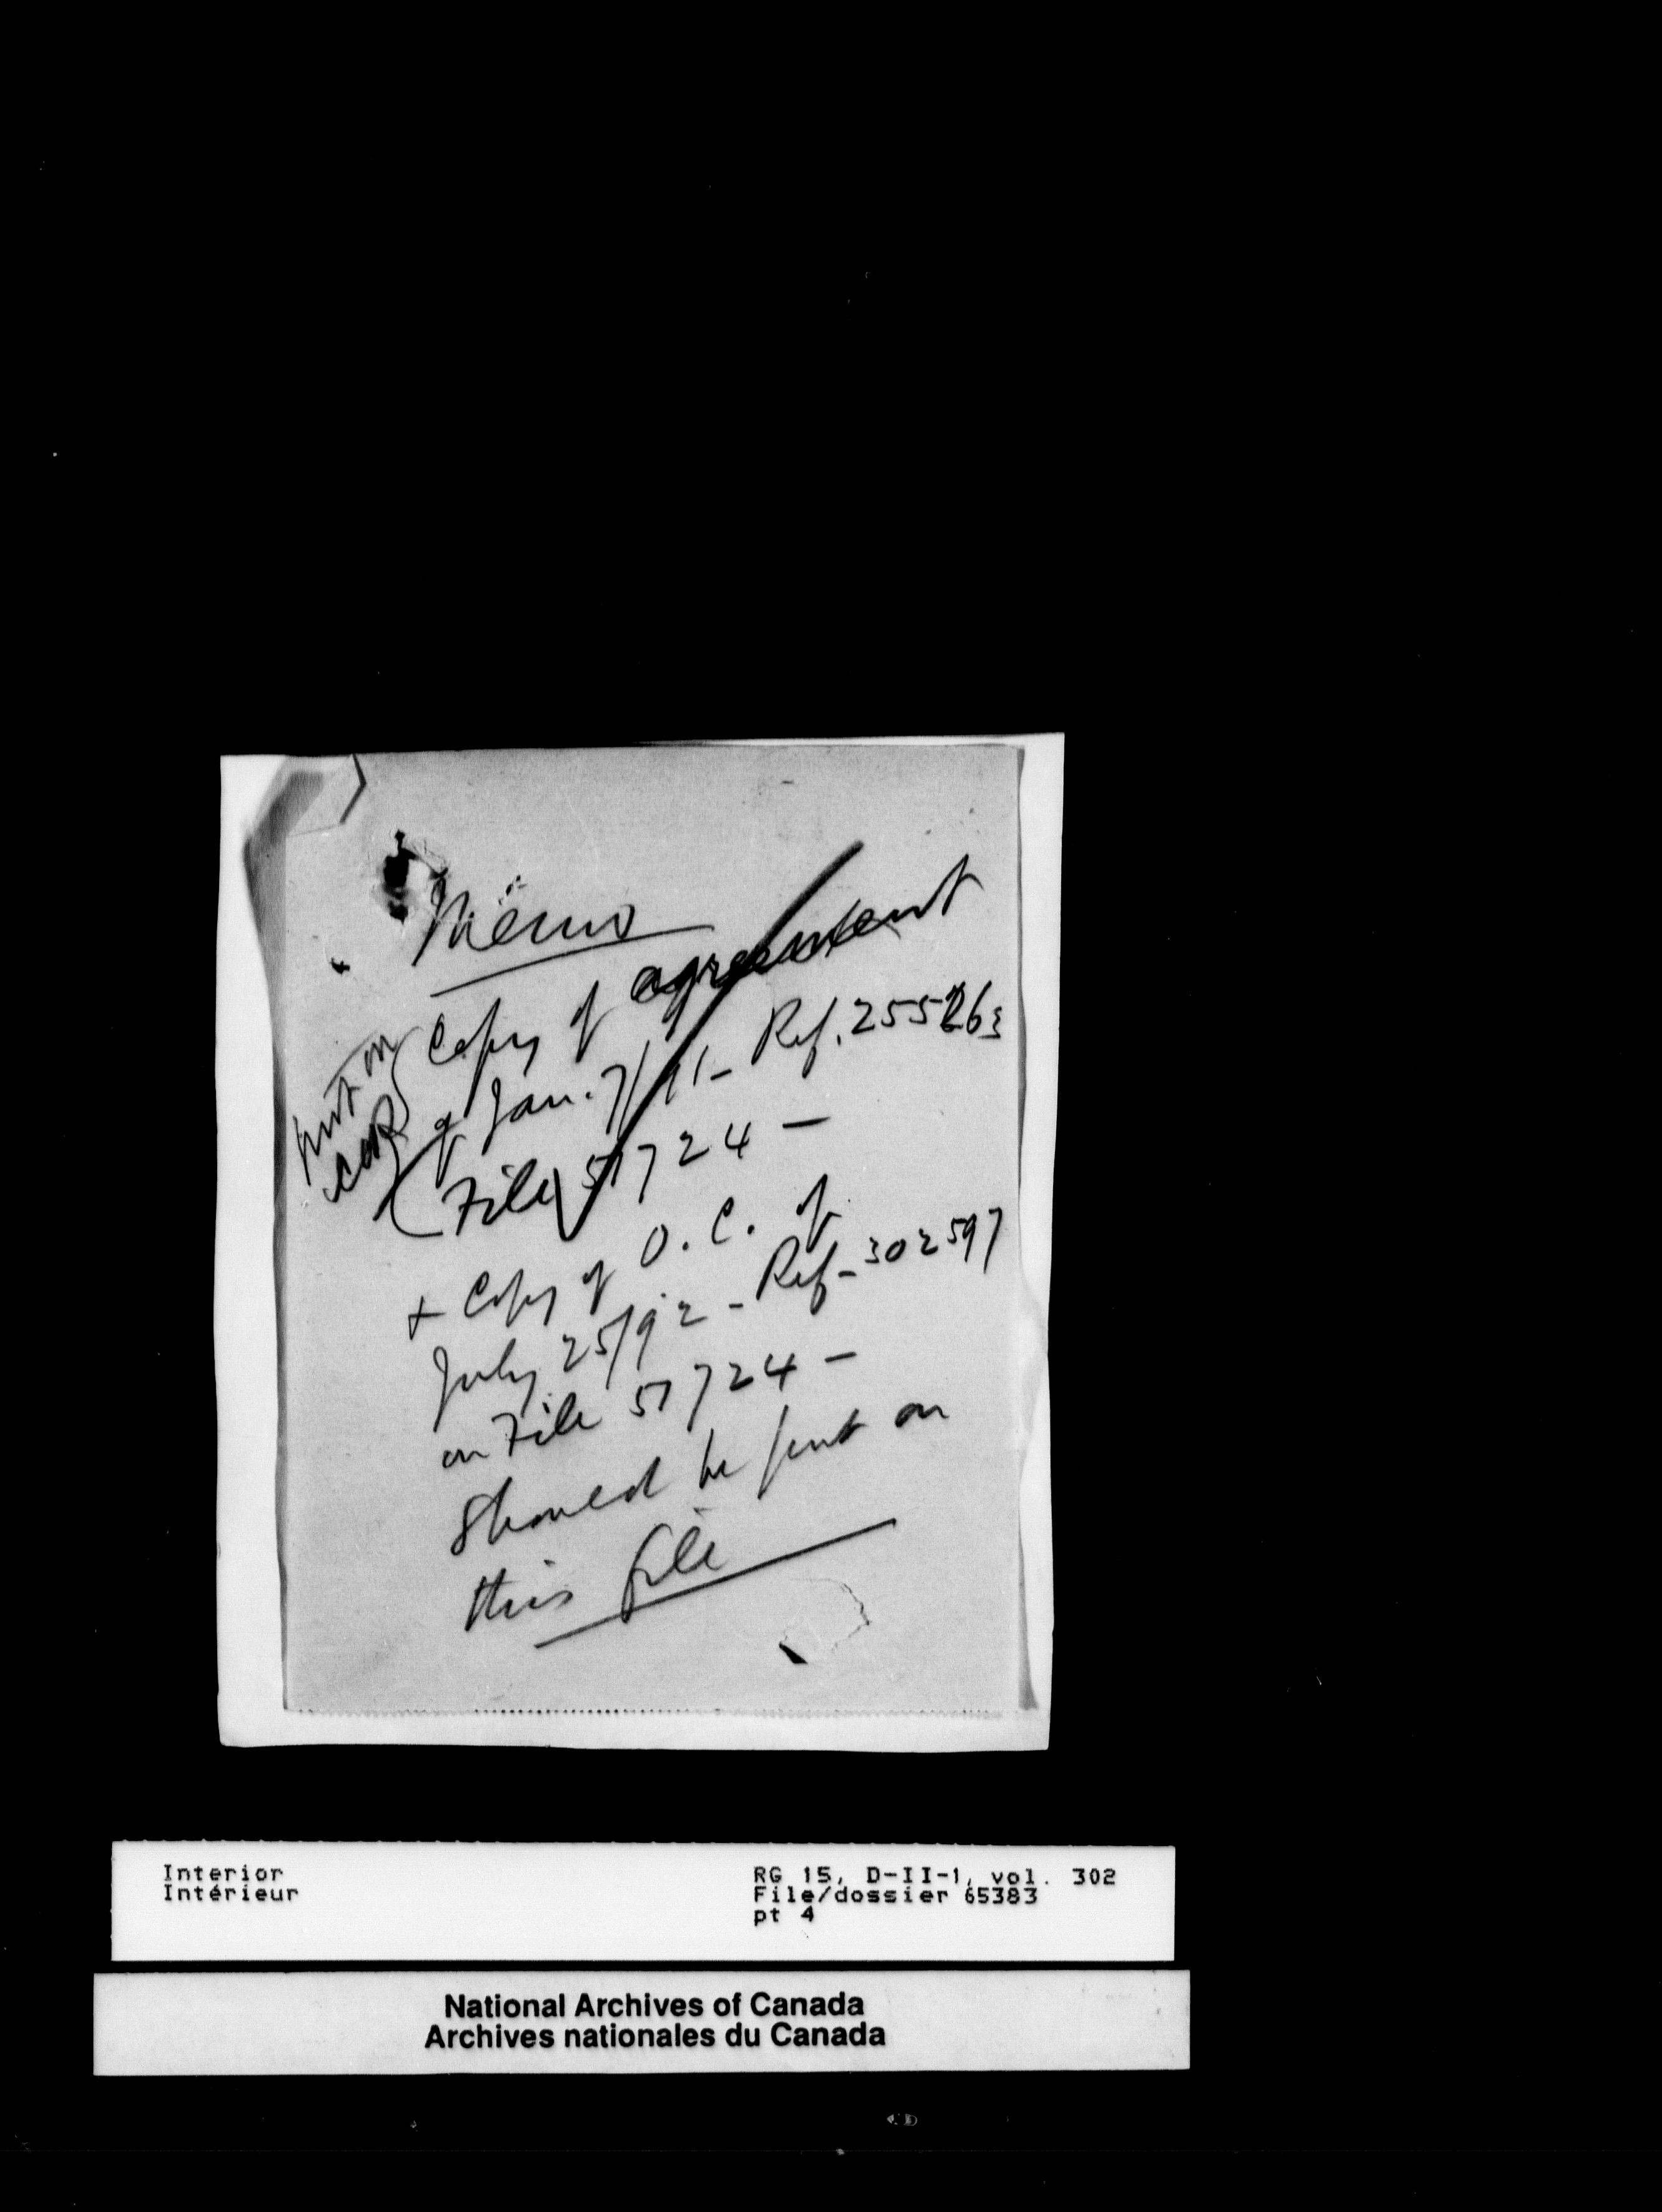 Memo
put on
Copy of agreement
of Jan. 7/91 - Ref. 255263
File 51724 -
+ Copy of O.C. of
July 25/92 - Ref - 302597
on File 51724 -
Should be put on
this file
Interior
Intérieur
RG 15, D-II-1, vol. 302
File/dossier 65383
pt 4
National Archives of Canada
Archives nationales du Canada